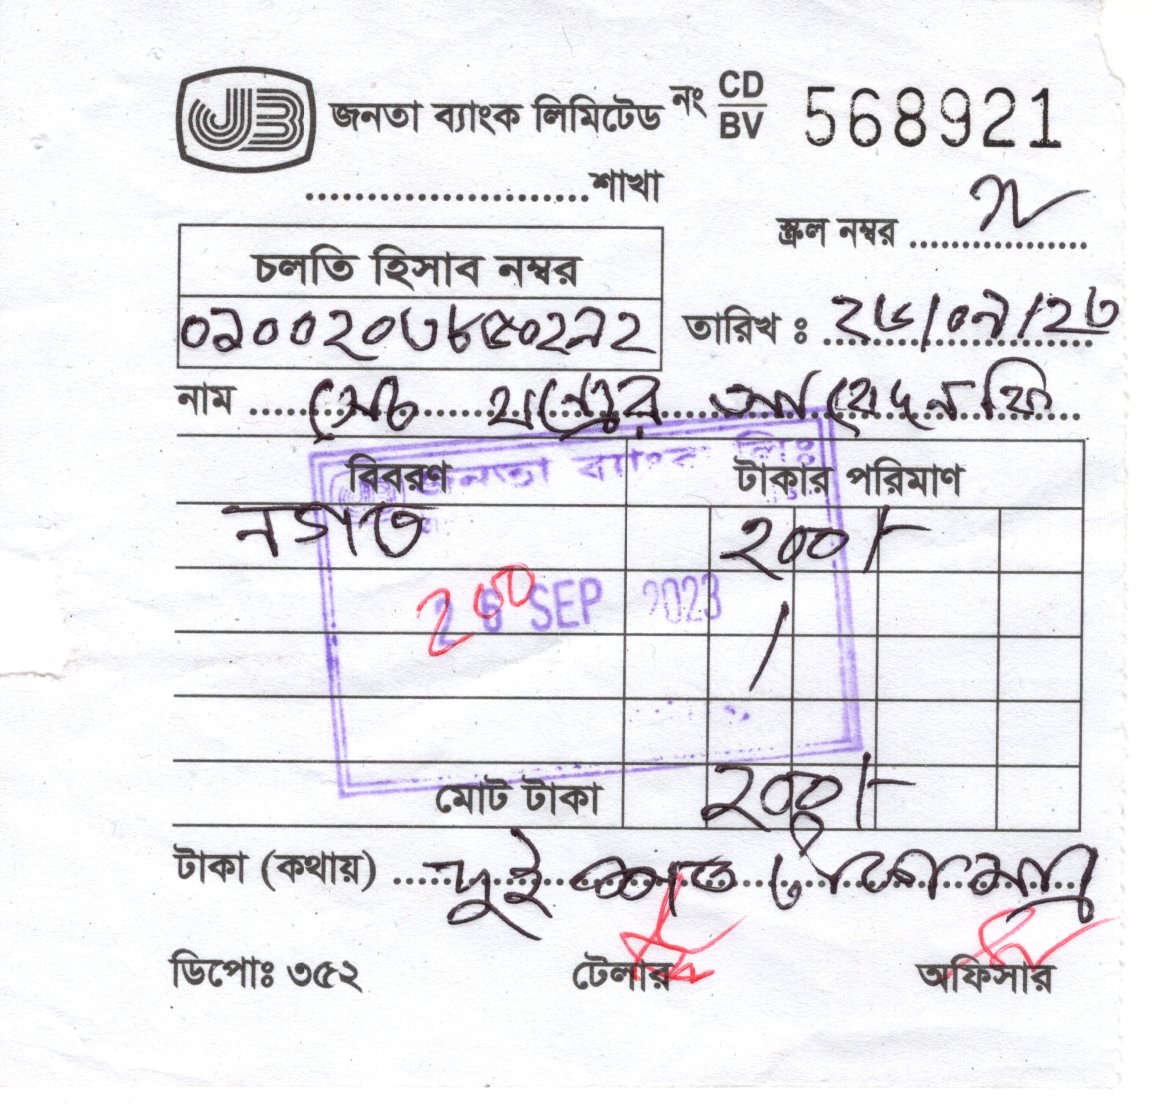 JB জনতা ব্যাংক লিমিটেড নং CD/BV 568921
....................শাখা
স্ক্রল নম্বর ................
চলতি হিসাব নম্বর
তারিখ : ২৬/০৯/২৩
নাম ... সেচ যন্ত্রের আবেদন ফি
জনতা ব্যাংক লিঃ
বিবরণ টাকার পরিমাণ
নগদ ২০০/-
200
26 SEP 2023
মোট টাকা ২০০/-
টাকা (কথায়) ... দুই শত টাকা মাত্র
ডিপোঃ ৩৫২ টেলার অফিসার